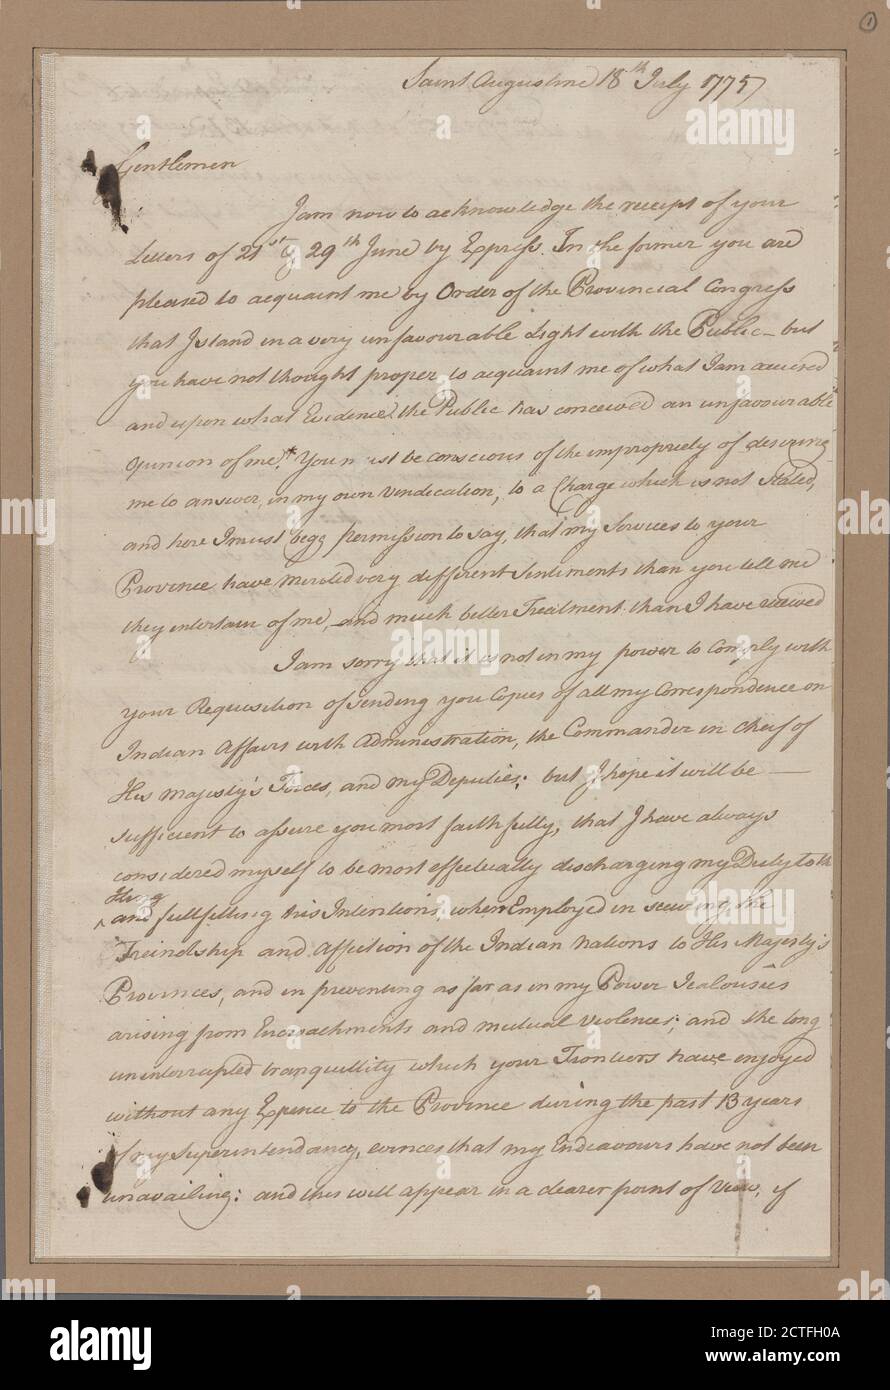 1
Saint Augustine 18th July 1775
Gentlemen
I am now to acknowledge the receipt of your
Letters of 21st & 29th June by Express. In the former you are
pleased to acquaint me by Order of the Provincial Congress
that I stand in a very unfavourable Light with the Public — but
you have not thought proper to acquaint me of what I am accused
and upon what Evidence the Public has conceived an unfavourable
Opinion of me.* You must be conscious of the impropriety of desiring
me to answer, in my own vindication, to a Charge which is not Stated,
and here I must beg permission to say, that my Services to your
Province have merited very different Sentiments than you tell me
they intertain of me, and much better Treatment than I have received
I am sorry that it is not in my power to Comply with
your Requisition of sending you Copies of all my Correspondence on
Indian Affairs with Administration, the Commander in Chief of
His Majesty's Forces, and my Deputies; but I hope it will be —
sufficient to assure you most faithfully, that I have always
considered myself to be most effectually discharging my Duty to the
King
^ and fullfilling his Intentions, when Employed in securing the
Freindship and Affection of the Indian Nations to His Majesty's
Provinces, and in preventing as far as in my Power Jealousies
arising from Encroachments and mutual Violences; and the long
uninterrupted tranquillity which your Frontiers have enjoyed
without any Expence to the Province during the past 13 years
of my Superintendancy, evinces that my Endeavours have not been
unavailing: and this will appear in a clearer point of View, if
alamy
alamy
Image ID: 2CTFH0A
www.alamy.com